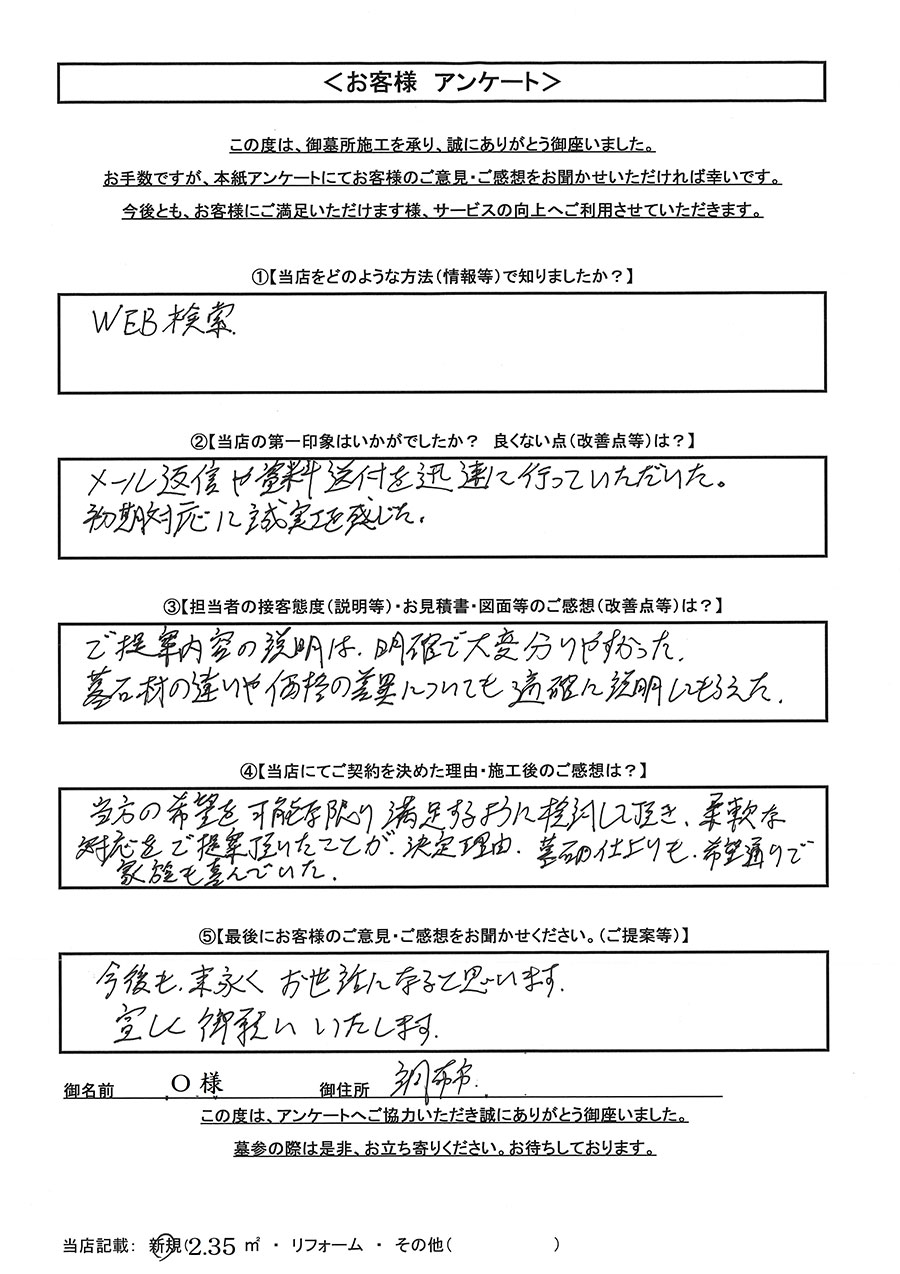 ＜お客様 アンケート＞
この度は、御墓所施工を承り、誠にありがとう御座いました。
お手数ですが、本紙アンケートにてお客様のご意見・ご感想をお聞かせいただければ幸いです。
今後とも、お客様にご満足いただけます様、サービスの向上へご利用させていただきます。
①【当店をどのような方法（情報等）で知りましたか？】
WEB検索.
②【当店の第一印象はいかがでしたか？ 良くない点（改善点等）は？】
メール返信や資料送付を迅速に行っていただいた。
初期対応に誠実さを感じた。
③【担当者の接客態度（説明等）・お見積書・図面等のご感想（改善点等）は？】
ご提案内容の説明は、明確で大変分りやすかった.
墓石材の違いや価格の差異についても適確に説明してもらえた.
④【当店にてご契約を決めた理由・施工後のご感想は？】
当方の希望を可能な限り満足するように検討して頂き、柔軟な
対応をご提案頂いたことが、決定理由. 墓石の仕上りも、希望通りで
家族も喜んでいた.
⑤【最後にお客様のご意見・ご感想をお聞かせください。（ご提案等）】
今後も、末永くお世話になると思います.
宜しく御願いいたします.
御名前 O 様 御住所 調布市.
この度は、アンケートへご協力いただき誠にありがとう御座いました。
墓参の際は是非、お立ち寄りください。お待ちしております。
当店記載： 新規（2.35 ㎡ ・ リフォーム ・ その他（ ）